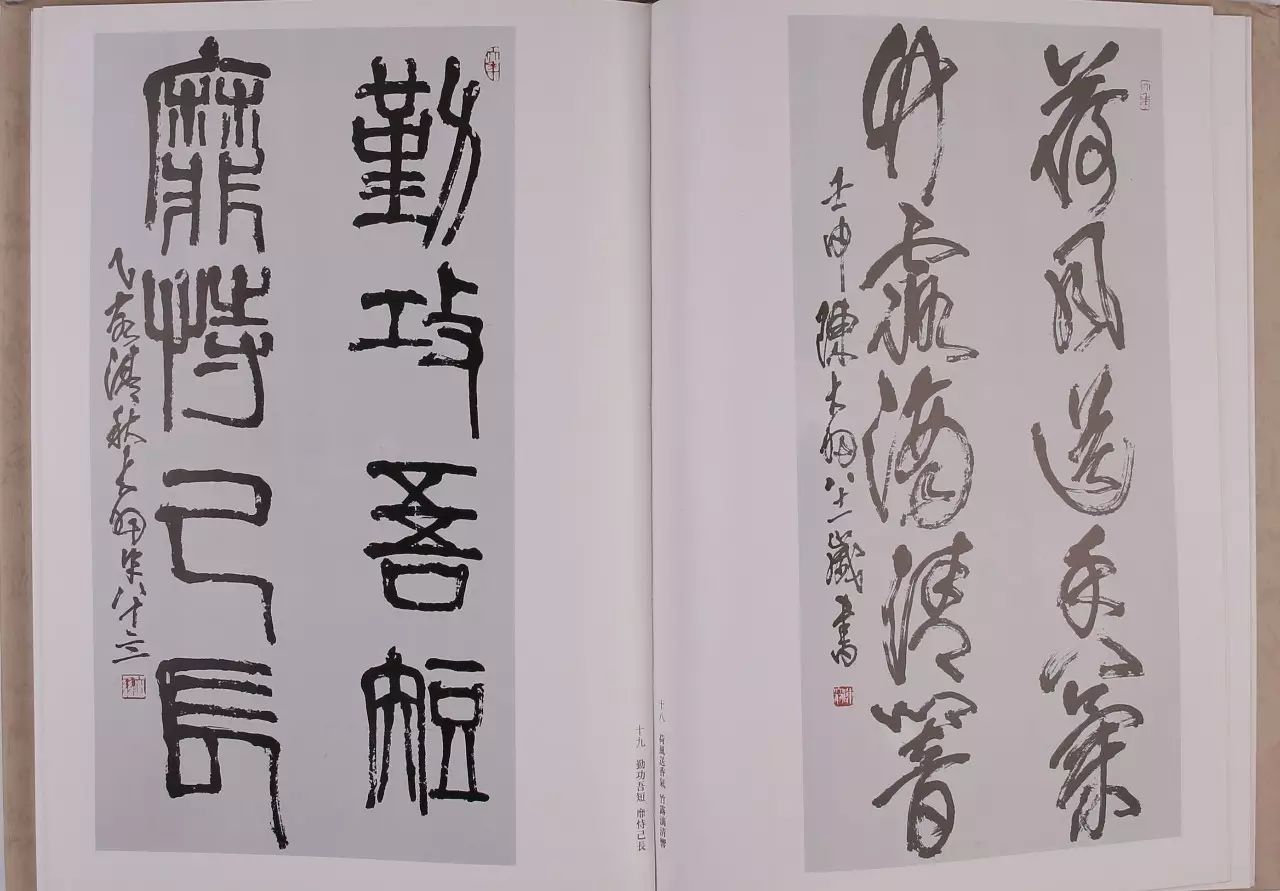 荷風送香氣
竹露滴清響
壬申陳大羽八十一歲書
十八 荷風送香氣 竹露滴清響
勤攻吾短
靡恃己長
乙亥清秋大羽年八十三
十九 勤功吾短 靡恃己長